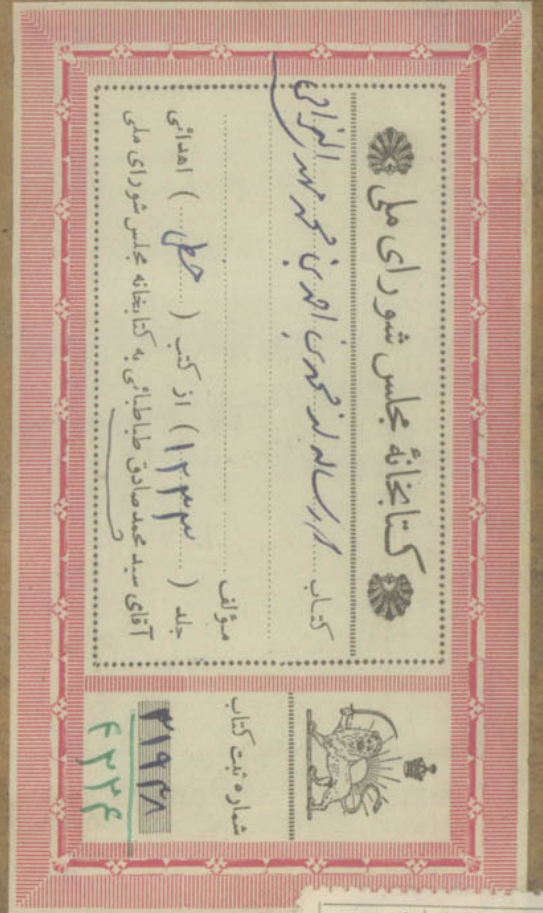 کتابخانهٔ مجلس شورای ملی
کتاب ۲ رساله از محمد بن احمد بن محمد مهدی النراقی
مؤلف
جلد (۱۲۳۳) از کتب (خطی) اهدائی
آقای سید محمد صادق طباطبائی به کتابخانه مجلس شورای ملی
شماره ثبت کتاب
۳۱۹۴۸
۴۲۲۴